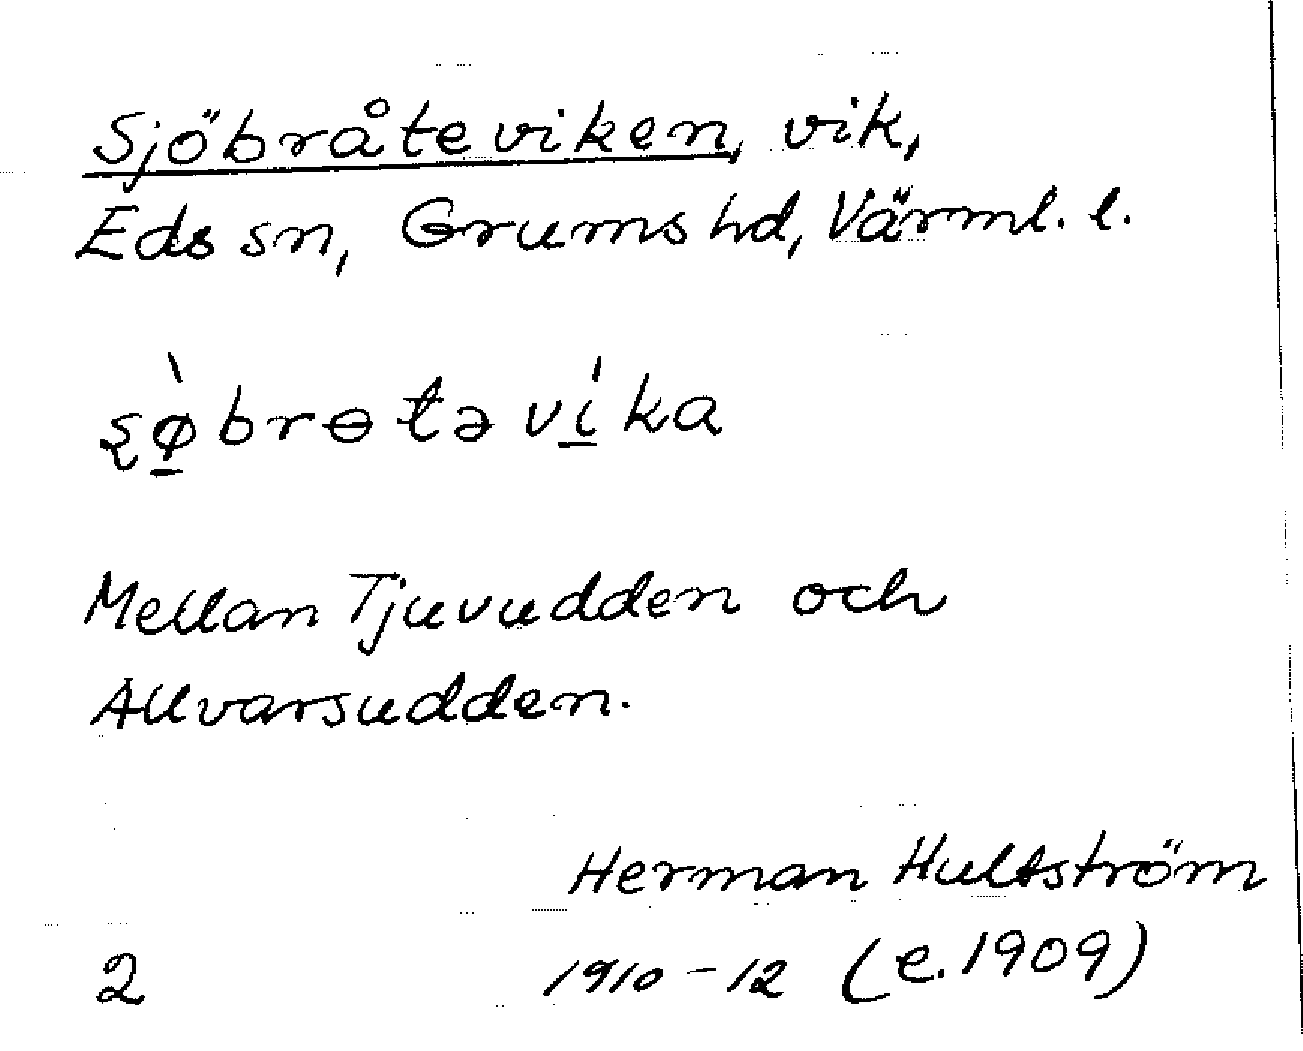 Sjöbråteviken, vik,
Eds sn, Grums hd, Värml. l.
ʂø̀brɵtəvíka
Mellan Tjuvudden och
Allvarsudden.
Herman Hultström
2 1910-12 (e. 1909)